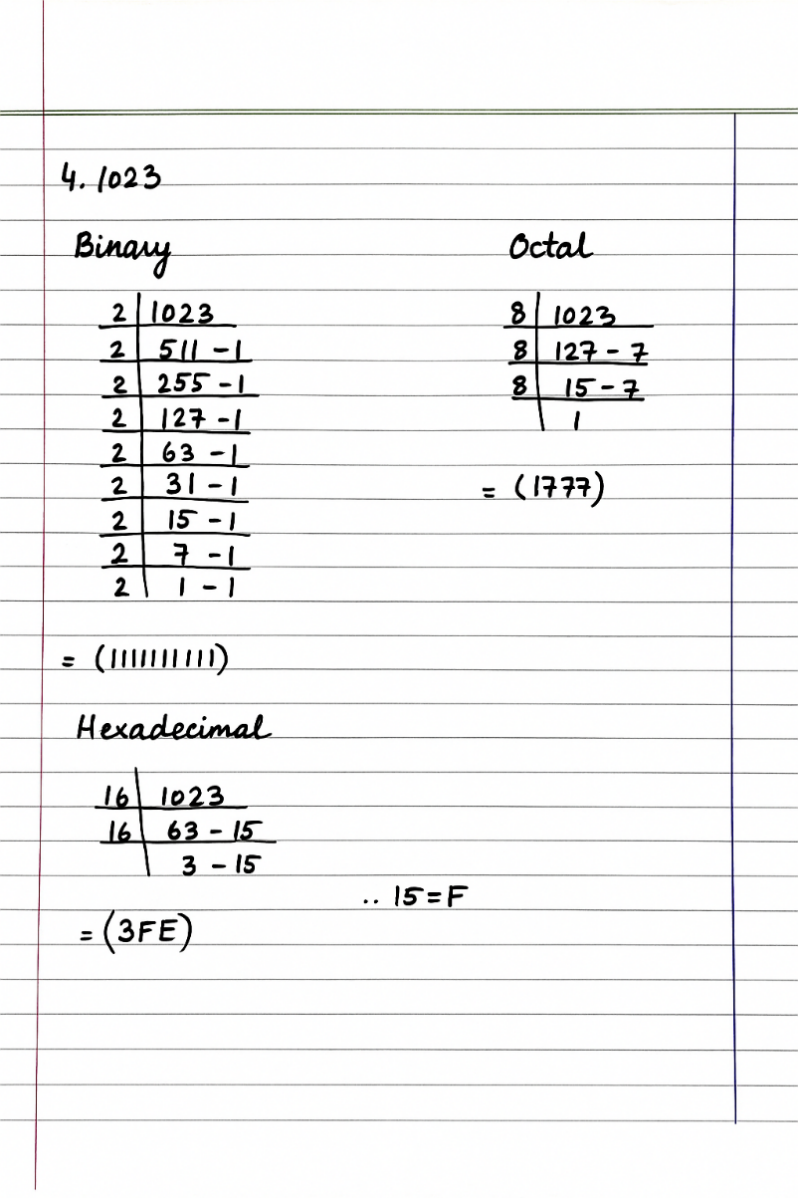 4. 1023
Binary
2 | 1023
2 | 511 - 1
2 | 255 - 1
2 | 127 - 1
2 | 63 - 1
2 | 31 - 1
2 | 15 - 1
2 | 7 - 1
2 | 1 - 1
= (1111111111)
Octal
8 | 1023
8 | 127 - 7
8 | 15 - 7
| 1
= (1777)
Hexadecimal
16 | 1023
16 | 63 - 15
| 3 - 15
.. 15 = F
= (3FE)